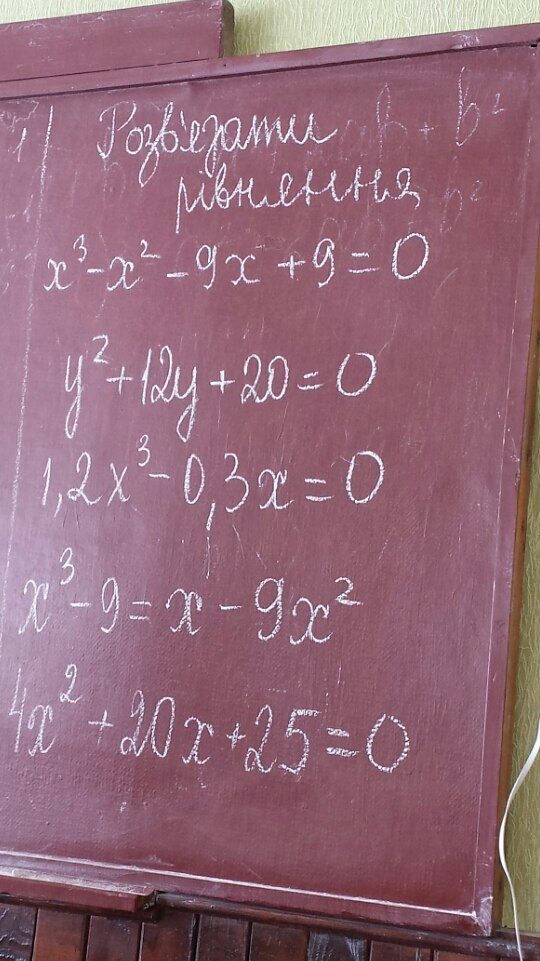 Розв'язати
рівняння
x³ - x² - 9x + 9 = 0
y² + 12y + 20 = 0
1,2x³ - 0,3x = 0
x³ - 9 = x - 9x²
4x² + 20x + 25 = 0